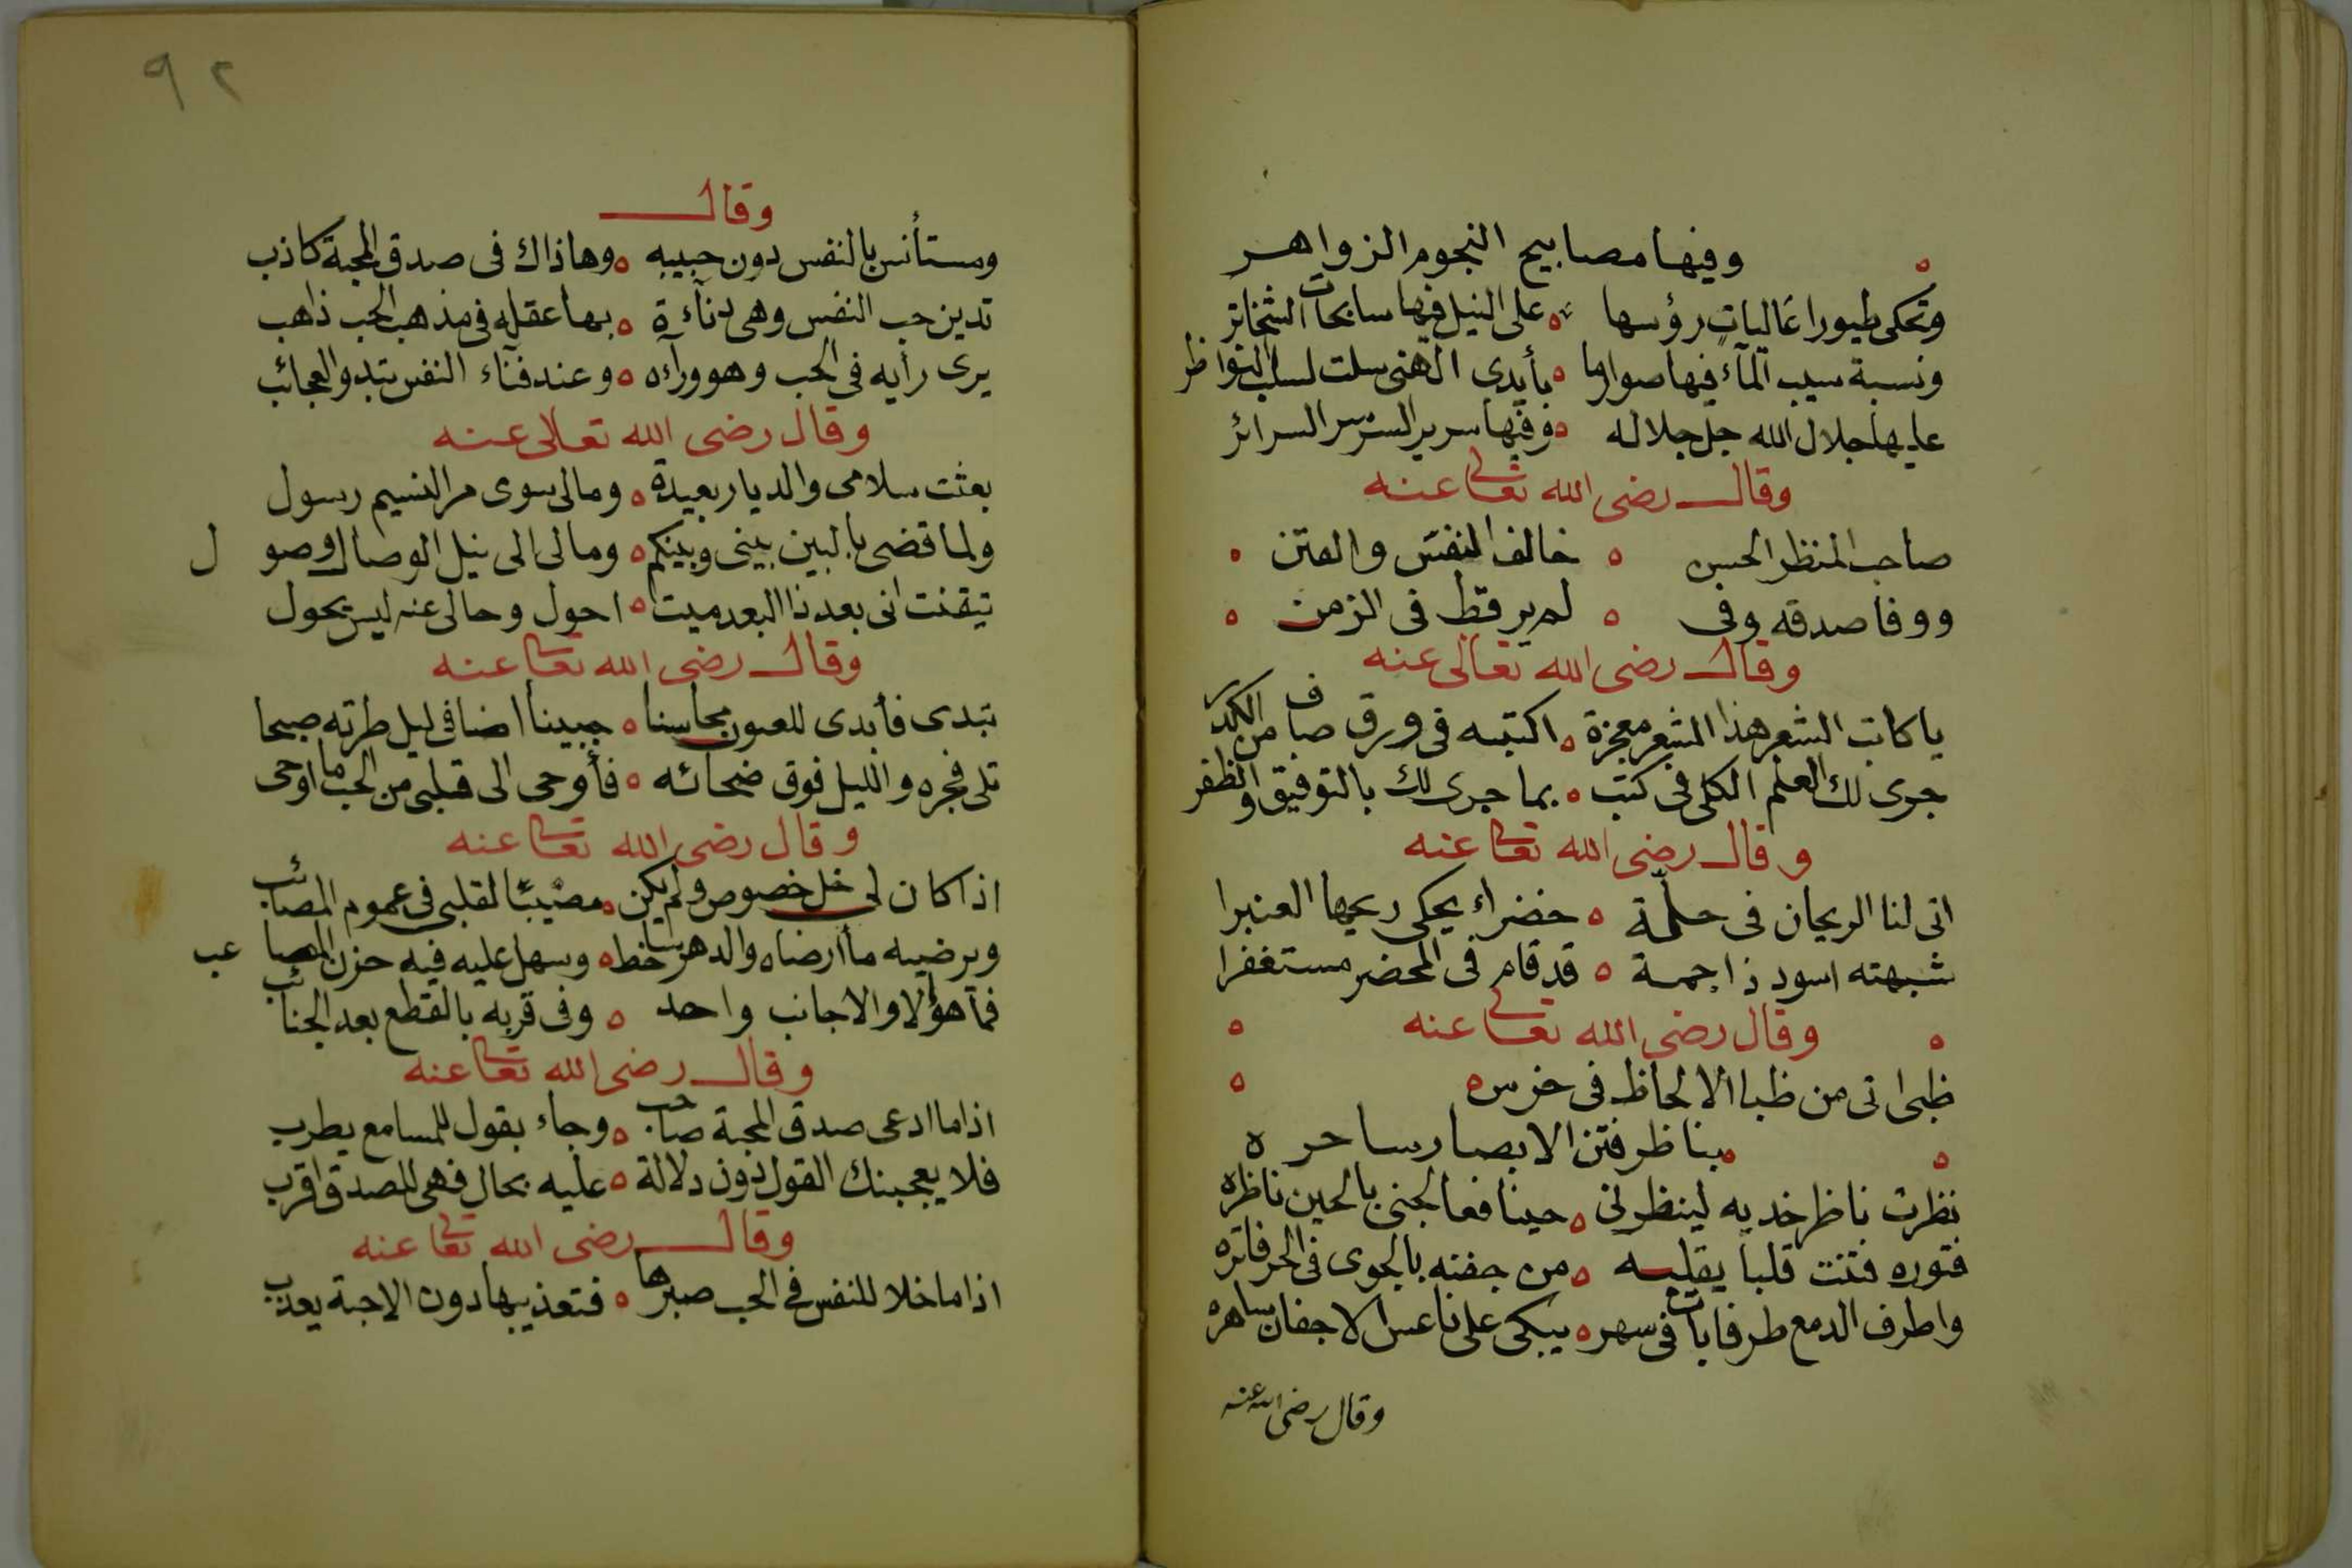 وفيها مصابيح النجوم الزواهر
وتحكى طيورا عاليات رؤسها ه على النيل فيها سابحات الشخاتر
ونسبة سيب المآء فيها صوارما ه بأيدى الهنى سلت لسلب النواظر
عليها جلال الله جل جلاله ه وفيها سرير السر سر السرائر
وقال رضى الله تعالى عنه
صاحب المنظر الحسن ه خالف النفس والفتن ه
ووفا صدقه وفى ه لم ير قط فى الزمن ه
وقال رضى الله تعالى عنه
يا كاتب الشعر هذا الشعر معجزة ه اكتبه فى ورق صاف من الكدر
جرى لك العلم الكلى فى كتب ه بما جرى لك بالتوفيق والظفر
وقال رضى الله تعالى عنه
اتى لنا الريحان فى حلّة ه خضراء يحكى ريحها العنبرا
شبهته اسود ذا جمة ه قد قام فى المحضر مستغفرا
وقال رضى الله تعالى عنه
ظبى اتى من ظبا الالحاظ فى خرس ه
بناظر فتن الابصار ساحره
نظرت ناظر خديه لينظرنى ه حينا فعالجنى بالحين ناظره
فتوره فتنت قلبا يقلبه ه من جفنه بالجوى فى الحر فاتره
واطرف الدمع طرفا بات فى سهر ه يبكى على ناعس الاجفان ساهره
وقال رضى الله عنه
٩٢
وقال
ومستأنس بالنفس دون حبيبه ه وها ذاك فى صدق المحبة كاذب
تدين حب النفس وهى دنآءة ه بها عقله فى مذهب الحب ذاهب
يرى رأيه فى الحب وهو ورآءه ه وعند فنآء النفس تبدو العجائب
وقال رضى الله تعالى عنه
بعثت سلامى والديار بعيدة ه ومالى سوى مر النسيم رسول
ولما قضى بالبين بينى وبينكم ه ومالى الى نيل الوصال وصول
تيقنت انى بعد ذا البعد ميت ه احول وحالى عنه ليس يحول
وقال رضى الله تعالى عنه
تبدى فأبدى للعيون محاسنا ه جبينا اضا فى ليل طرته صبحا
تلى فجره والليل فوق ضحائه ه فأوحى الى قلبى من الحب ما اوحى
وقال رضى الله تعالى عنه
اذا كان لى خل خصوص ولم يكن ه مصيبا لقلبى فى عموم المصائب
ويرضيه ما أرضاه والدهر ساخط ه وسهل عليه فيه حزن المصاعب
فما هؤلا والاجانب واحد ه وفى قربه بالقطع بعد الجنائب
وقال رضى الله تعالى عنه
اذا ما ادعى صدق المحبة صاحب ه وجاء بقول للمسامع يطرب
فلا يعجبنك القول دون دلالة ه عليه بحال فهى للصدق اقرب
وقال رضى الله تعالى عنه
اذا ما خلا للنفس فى الحب صبرها ه فتعذيبها دون الاحبة يعذب